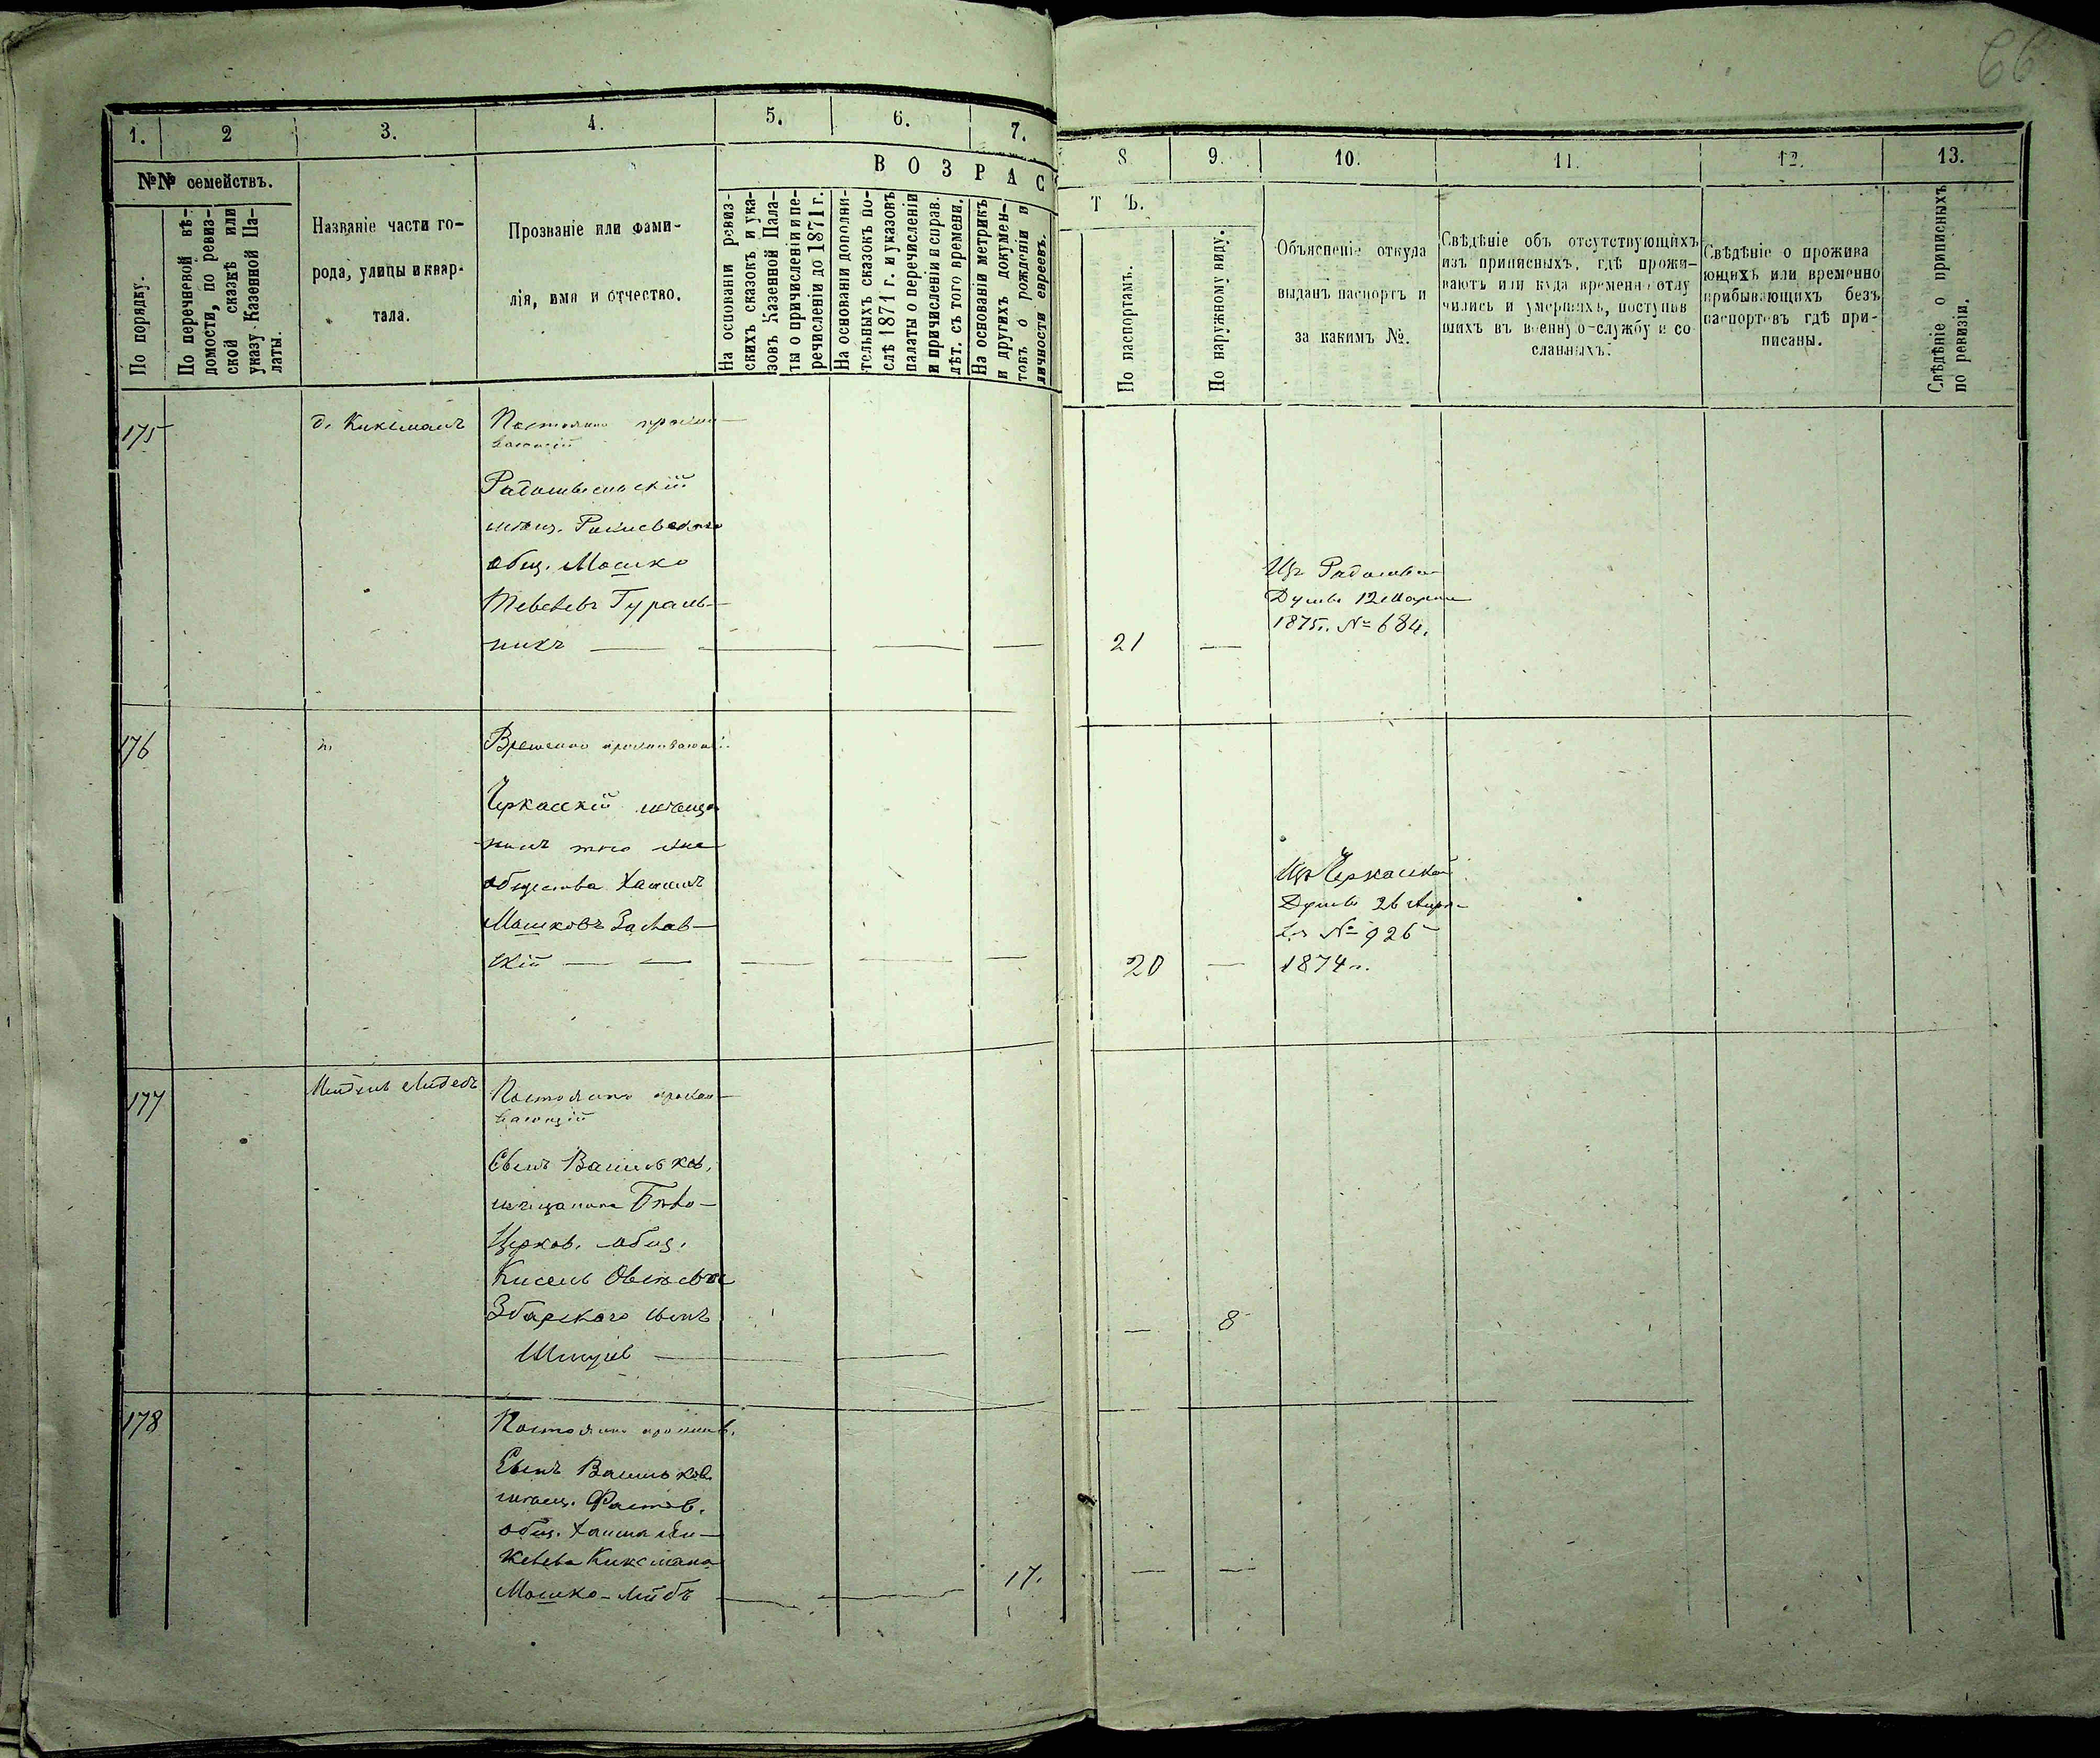 66
1.
2
3.
4.
5.
6.
7.
8
9.
10.
11.
12.
13.
№№ семействъ.
По порядку.
По перечневой вѣ-
домости, по ревиз-
ской сказкѣ или
указу Казенной Па-
латы.
Названіе части го-
рода, улицы и квар-
тала.
Прозваніе или фами-
лія, имя и отчество.
ВОЗРАС
Т Ъ.
На основаніи ревиз-
скихъ сказокъ и ука-
зовъ Казенной Пала-
ты о причисленіи и пе-
речисленіи до 1871 г.
На основаніи дополни-
тельныхъ сказокъ по-
слѣ 1871 г. и указовъ
палаты о перечисленіи
и причисленіи и справ.
лѣт. съ того времени.
На основаніи метрикъ
и другихъ докумен-
товъ о рожденіи и
личности евреевъ.
По паспортамъ.
По наружному виду.
Объясненіе откуда
выданъ паспортъ и
за какимъ №.
Свѣдѣніе объ отсутствующихъ
изъ приписныхъ, гдѣ прожи-
ваютъ или куда временно отлу
чились и умершихъ, поступив
шихъ въ военную-службу и со
сланныхъ.
Свѣдѣніе о прожива
ющихъ или временно
прибывающихъ безъ
паспортовъ гдѣ при-
писаны.
Свѣдѣніе о приписныхъ
по ревизіи.
175
д. Киксманъ
Постоянно прожи-
вающій
Радомысльскій
мѣщ.
общ. Мошко
Гураль-
никъ
21
Изъ Радомысл
Думы 12 Марта
1875г. № 684.
176
Временно проживающій
Черкасскій мѣща
нинъ того же
общества Хаимъ
Мошковъ Заслав-
скій
20
Изъ Черкаской
Думы 26 Апрѣ-
ля № 926
1874г.
177
Постоянно прожи-
вающій
Сынъ Васильков.
мѣщанина Бѣло-
Церков. общ.
Кисель
Збарского сынъ
Шмуль
8
178
Постоянно прожив.
Сынъ Васильков.
мѣщ. Фастов.
общ. Хаима
Киксмана
Мошко-Лейбъ
17.